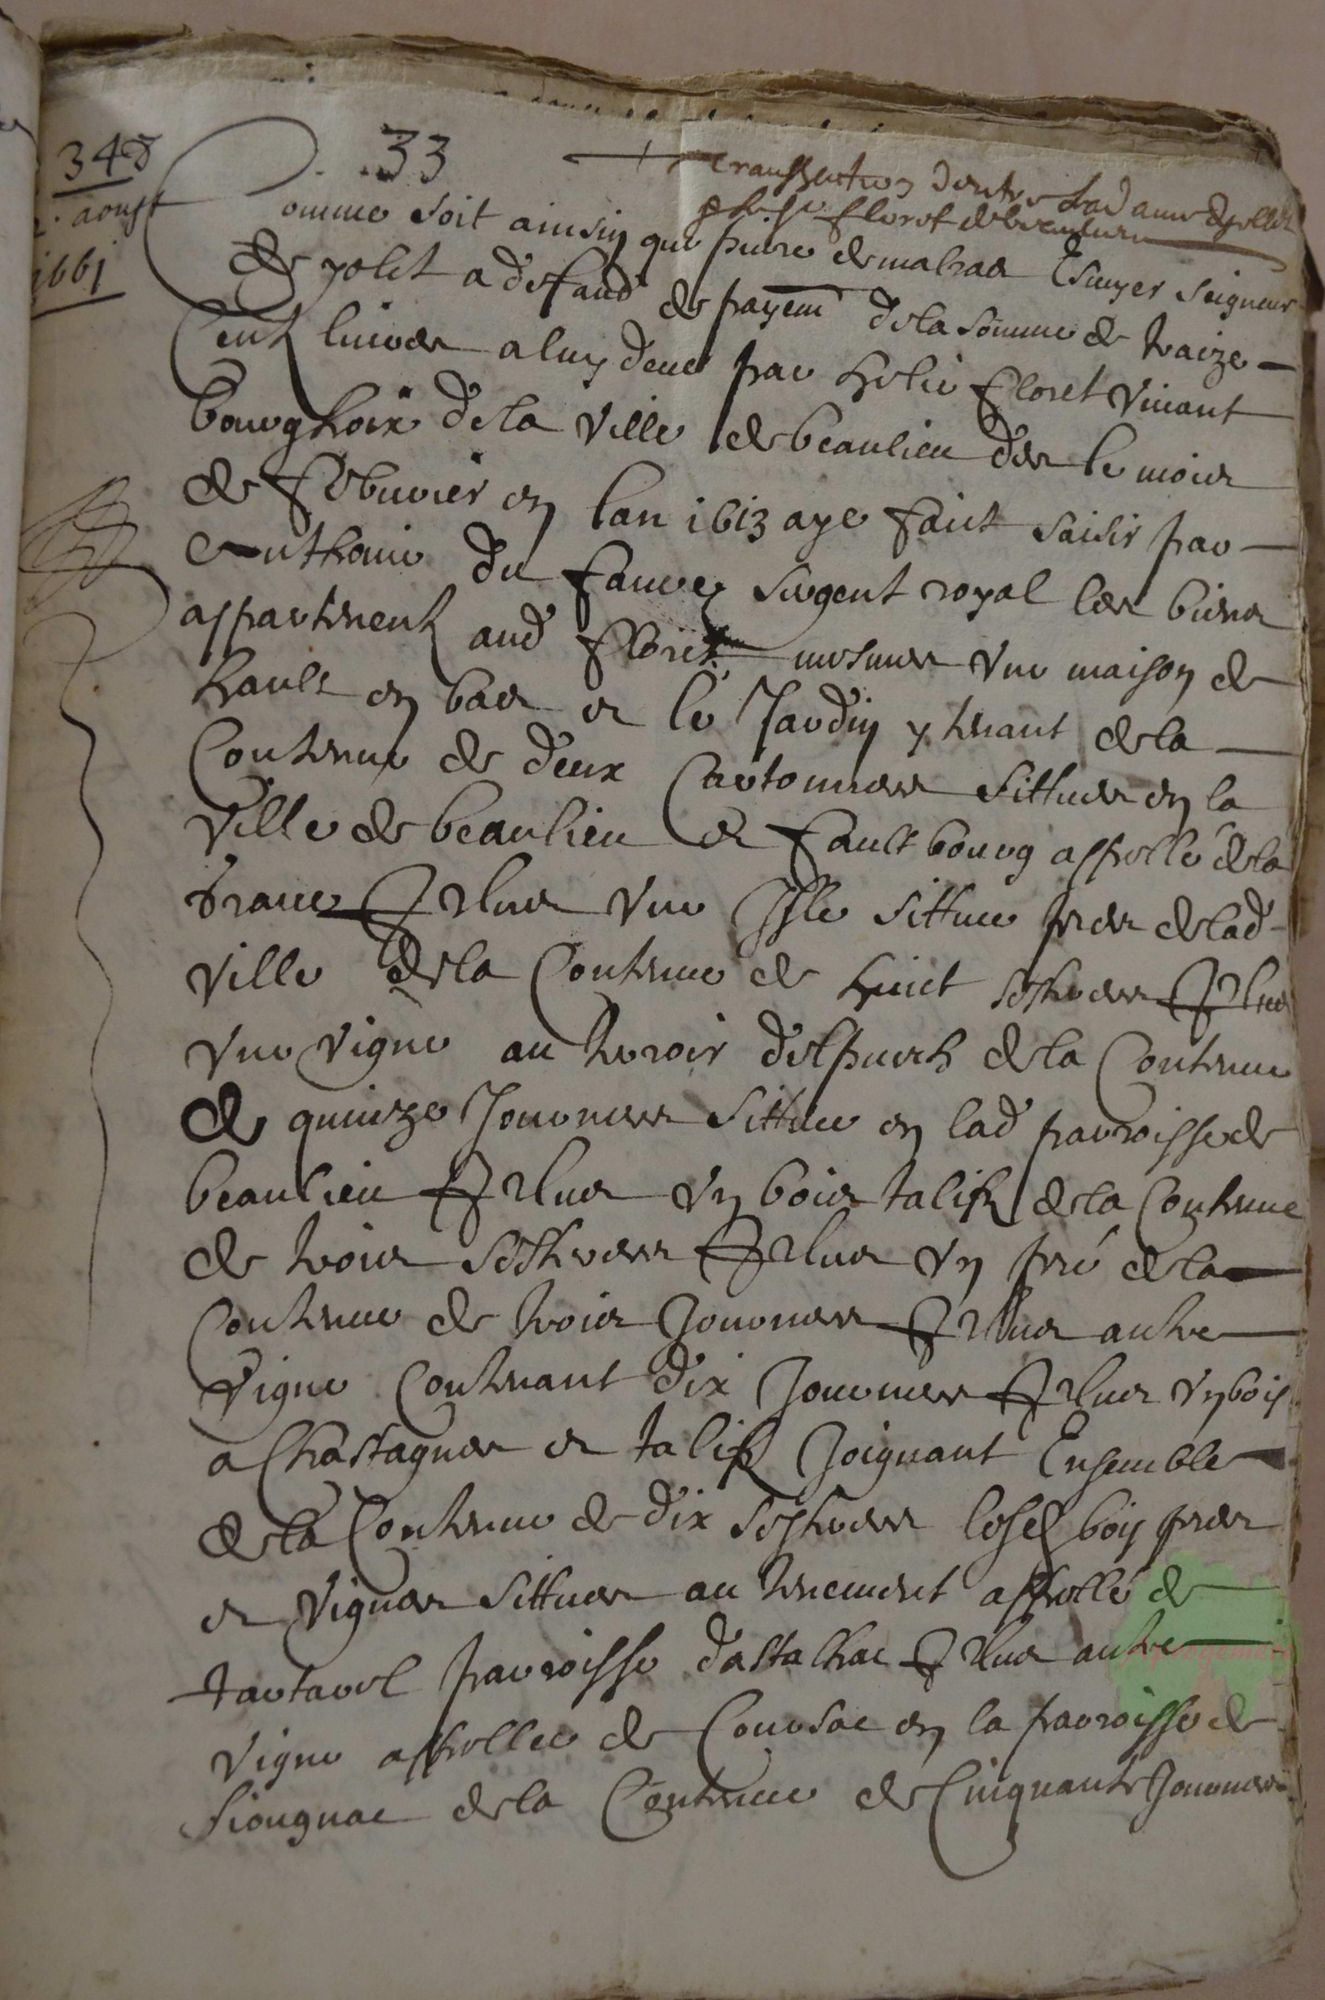 348
33
aoust
1661
Transaction dentre lad dame dyollet
floret de beaulieu
Comme soit ainsin que pierre demalras Escuyer seigneur
de yolet a deffaud de payem dela somme de traize
Cent livres a luy deue par helie floret vivant
bourghoix dela ville de beaulieu des le mois
de febvrier en lan 1613 aye faict saisir par
Anthoine du faure sergent royal les biens
appartnent aud floret mesmes vne maison de
hault en bas et le Jardin y tenant dela
Contenue de deux Cartonnees sittues en la
ville de beaulieu et faultbourg appelle dela
Grave Et plus vne Isle sittuee pres delad
ville dela Contenue de huict sestrees Et plus
vne vigne au teroir delpuech dela Contenue
de quinze Journees sittuee en lad parroisse de
beaulieu Et plus vn bois talis dela Contenue
de trois sestrees Et plus vn pré dela
Contenue de trois Journees Et plus autre
vigne Contenant dix Journees Et plus vn bois
a Chastagnes et talis Joignant Ensemble
dela Contenue de dix sestrees lesd bois pres
et vignes sittues au tenement appellé de
tartavel parroisse dastalhac Et plus autre
vigne appellee de Coursac en la parroisse de
siougnac dela Contenue de Cinquante Journees